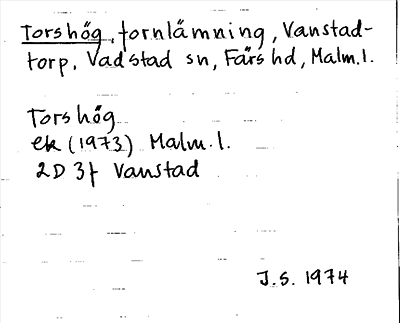 Torshög, fornlämning, Vanstad-
torp, Vadstad sn, Färs hd, Malm.l.
Torshög
ek (1973) Malm.l.
2D 3f Vanstad
J.S. 1974